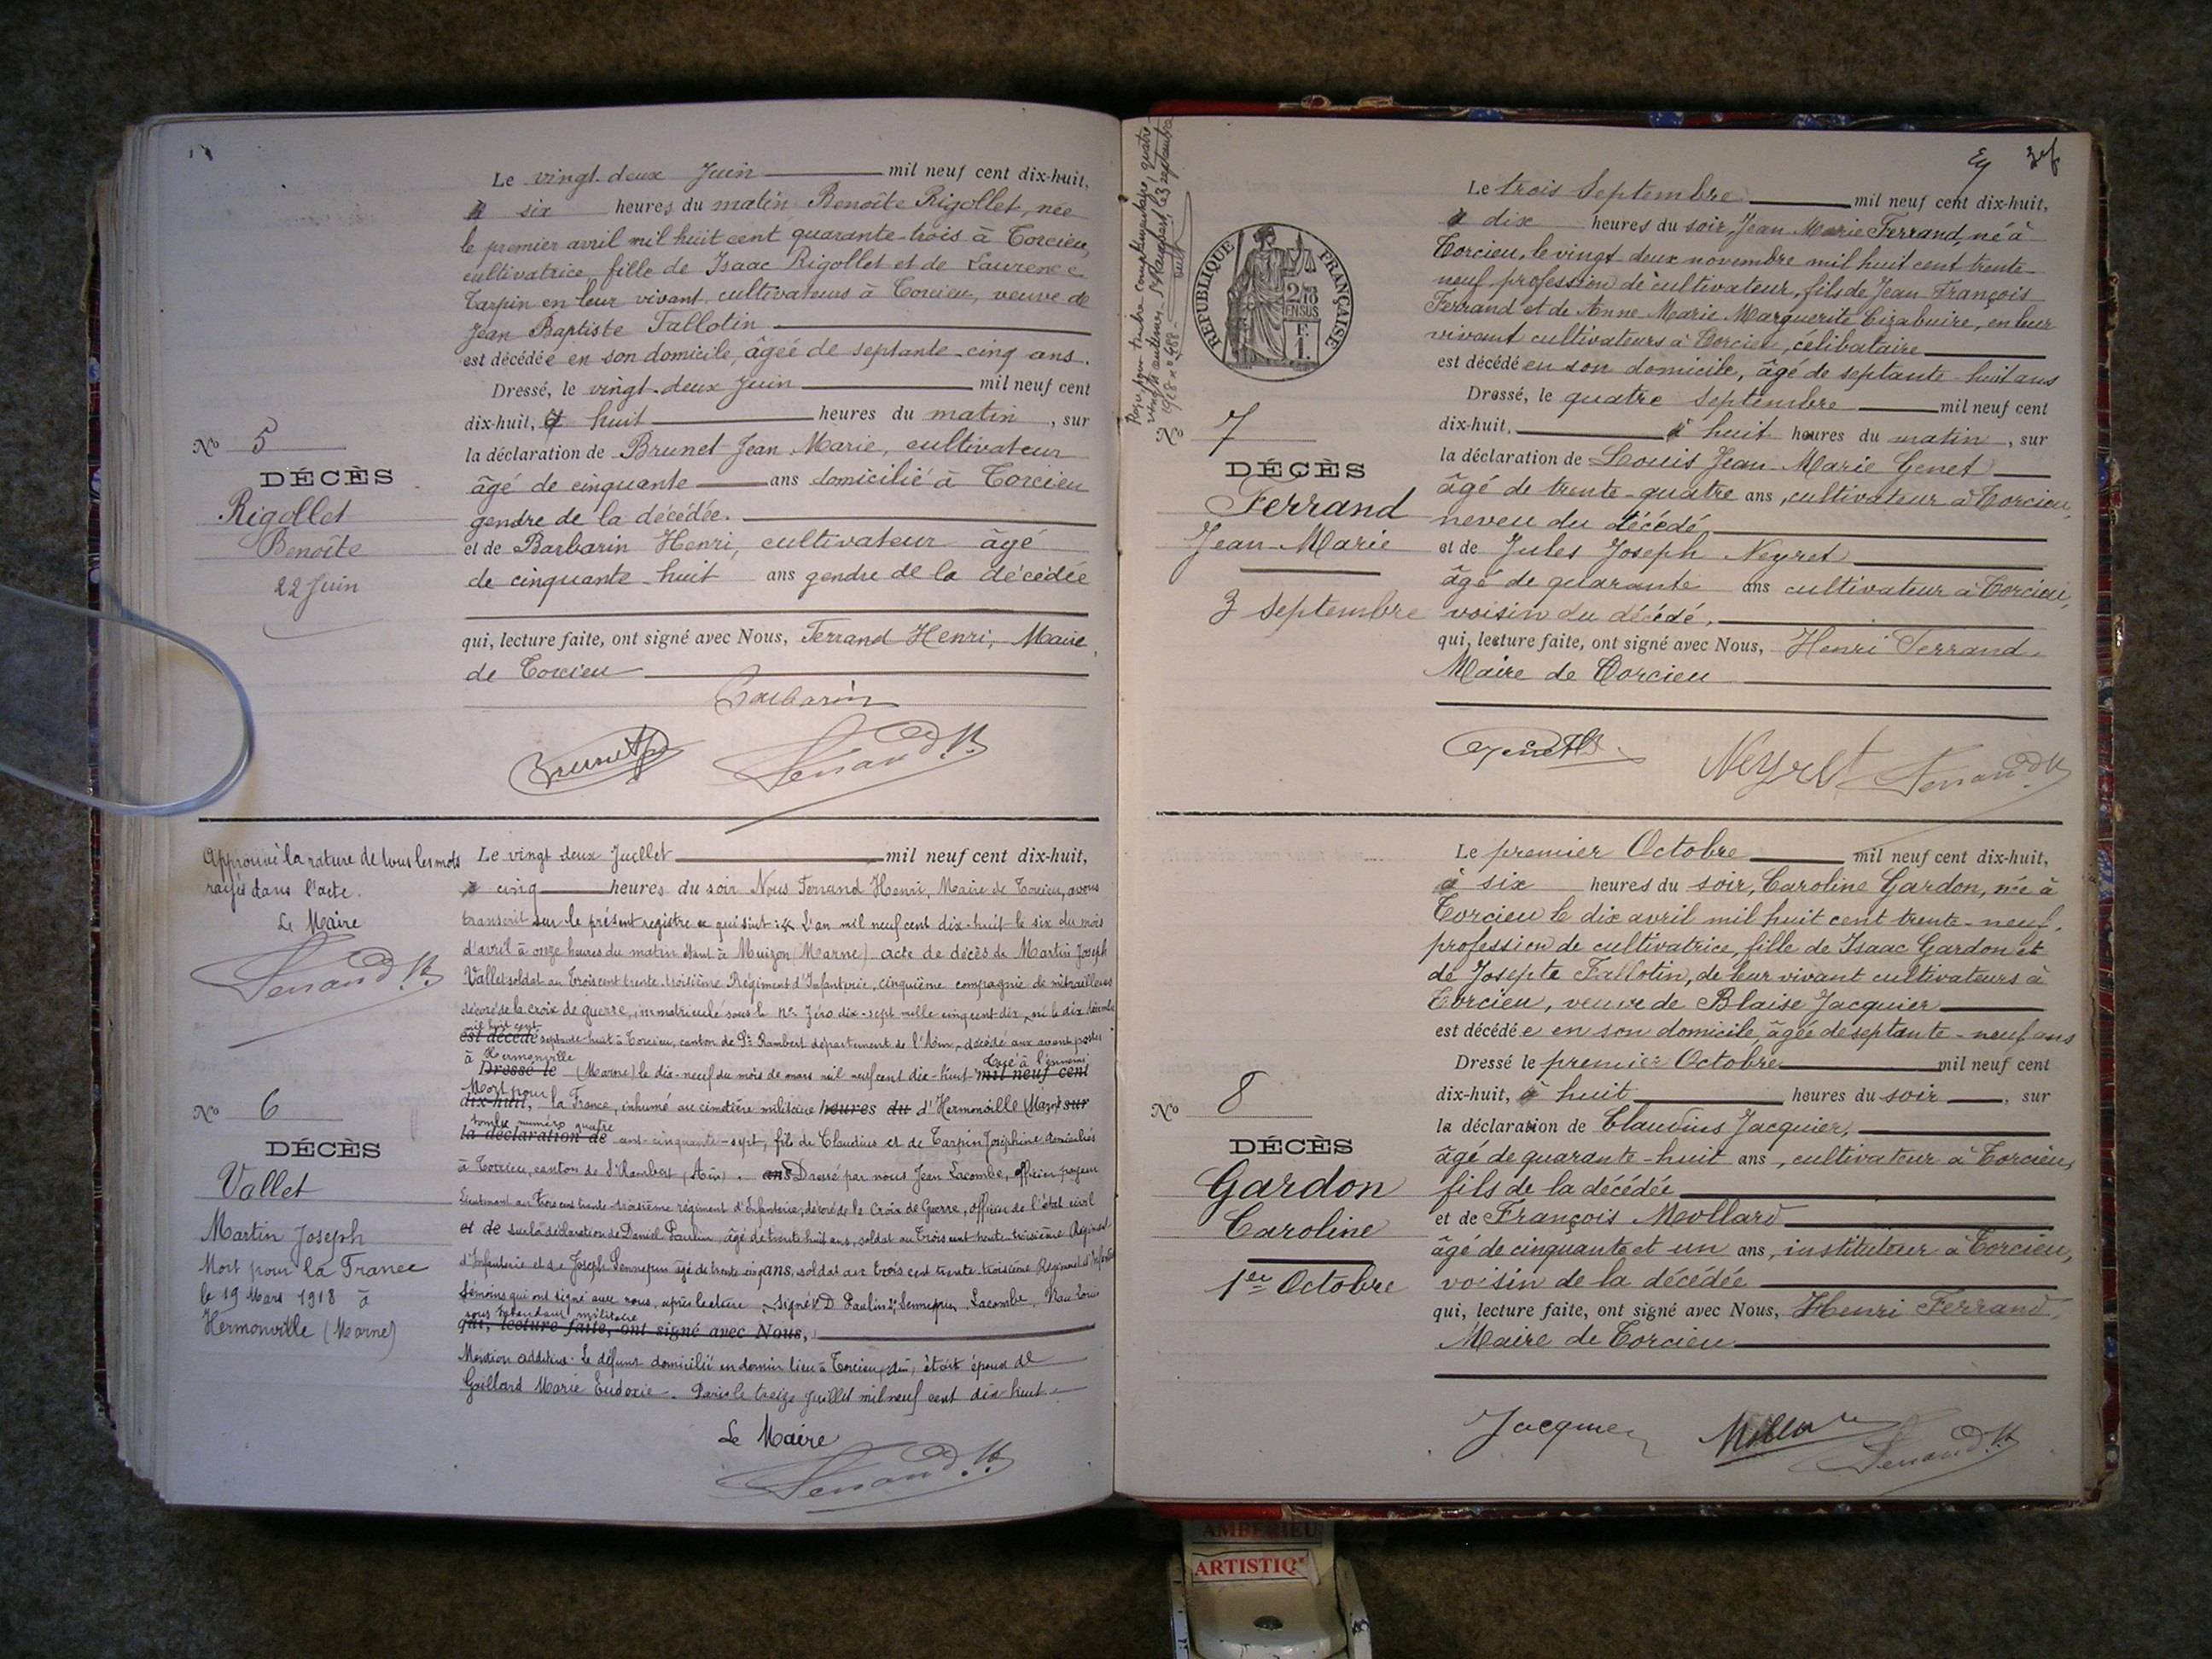 Le vingt-deux Juin mil neuf cent dix-huit,
à six heures du matin Benoîte Rigollet, née
le premier avril mil huit cent quarante-trois à Torcieu,
cultivatrice, fille de Isaac Rigollet et de Laurence
Tarpin en leur vivant cultivateurs à Torcieu, veuve de
Jean Baptiste Tallotin
est décédée en son domicile, âgée de septante-cinq ans.
Dressé, le vingt-deux Juin mil neuf cent
dix-huit, à huit heures du matin, sur
la déclaration de Brunet Jean Marie, cultivateur
âgé de cinquante ans domicilié à Torcieu
gendre de la décédée.
et de Barbarin Henri, cultivateur âgé
de cinquante-huit ans gendre de la décédée
qui, lecture faite, ont signé avec Nous, Ferrand Henri, Maire
de Torcieu
Barbarin
Brunet
Ferrand H.
No 5
DÉCÈS
Rigollet
Benoîte
22 Juin
Approuvé la rature de tous les mots
rayés dans l'acte.
Le Maire
Ferrand H.
No 6
DÉCÈS
Vallet
Martin Joseph
Mort pour la France
le 19 Mars 1918 à
Hermonville (Marne)
Le vingt deux Juillet mil neuf cent dix-huit,
à cinq heures du soir Nous Ferrand Henri, Maire de Torcieu, avons
transcrit sur le présent registre ce qui suit : L'an mil neuf cent dix-huit le six du mois
d'avril à onze heures du matin étant à Muizon (Marne) acte de décès de Martin Joseph
Vallet soldat au Trois cent trente-troisième Régiment d'Infanterie, cinquième compagnie de mitrailleuses
décoré de la croix de guerre, immatriculé sous le No Zéro dix-sept mille cinq cent dix, né le dix décembre
mil huit cent
est décédé septante-huit à Torcieu, canton de St Rambert département de l'Ain, décédé aux avant postes
à Hermonville
Dressé le (Marne) le dix-neuf du mois de mars mil neuf cent dix-huit Tué à l'ennemi mil neuf cent
Mort pour
dix-huit, la France, inhumé au cimetière militaire heures du d'Hermonville (Marne) sur
tombe numéro quatre
la déclaration de cent-cinquante-sept, fils de Claudius et de Tarpin Joséphine domiciliés
à Torcieu, canton de St Rambert (Ain). ans Dressé par nous Jean Lacombe, officier payeur
Lieutenant au Trois cent trente-troisième régiment d'Infanterie, décoré de la Croix de Guerre, officier de l'état civil
et de sur la déclaration de Daniel Paulin, âgé de trente huit ans, soldat au Trois cent trente-troisième Régiment
d'Infanterie et de Joseph Sennepin âgé de trente cinq ans, soldat au trois cent trente-troisième Régiment d'Infanterie
témoins qui ont signé avec nous, après lecture. Signé : D Paulin, Sennepin, Lacombe,
sous Intendant militaire
qui, lecture faite, ont signé avec Nous,
Mention additive. Le défunt domicilié en dernier lieu à Torcieu, Ain, était époux de
Gaillard Marie Eudoxie. Paris le treize Juillet mil neuf cent dix-huit.
Le Maire
Ferrand H.
RÉPUBLIQUE FRANÇAISE
2/10
EN SUS
1 F.
Le trois Septembre mil neuf cent dix-huit,
à dix heures du soir, Jean Marie Ferrand, né à
Torcieu, le vingt deux novembre mil huit cent trente-
neuf profession de cultivateur, fils de Jean François
Ferrand et de Anne Marie Marguerite en leur
vivant cultivateurs à Torcieu, célibataire
est décédé en son domicile, âgé de septante-huit ans
Dressé, le quatre Septembre mil neuf cent
dix-huit, à huit heures du matin, sur
la déclaration de Louis Jean Marie Genet
âgé de trente-quatre ans, cultivateur à Torcieu,
neveu du décédé
et de Jules Joseph Neyret
âgé de quarante ans cultivateur à Torcieu,
voisin du décédé,
qui, lecture faite, ont signé avec Nous, Henri Ferrand,
Maire de Torcieu
Genet
Neyret
Ferrand H.
No 7
DÉCÈS
Ferrand
Jean-Marie
3 Septembre
Le premier Octobre mil neuf cent dix-huit,
à six heures du soir, Caroline Gardon, née à
Torcieu le dix avril mil huit cent trente-neuf,
profession de cultivatrice, fille de Isaac Gardon et
de Josepte Fallotin, de leur vivant cultivateurs à
Torcieu, veuve de Blaise Jacquier
est décédée en son domicile, âgée de septante-neuf ans
Dressé le premier Octobre mil neuf cent
dix-huit, à huit heures du soir, sur
la déclaration de Claudius Jacquier,
âgé de quarante-huit ans, cultivateur à Torcieu,
fils de la décédée
et de François Mollard
âgé de cinquante et un ans, instituteur à Torcieu,
voisin de la décédée
qui, lecture faite, ont signé avec Nous, Henri Ferrand,
Maire de Torcieu
Jacquier
Mollard
Ferrand H.
No 8
DÉCÈS
Gardon
Caroline
1er Octobre
AMBERIEU
ARTISTIQ